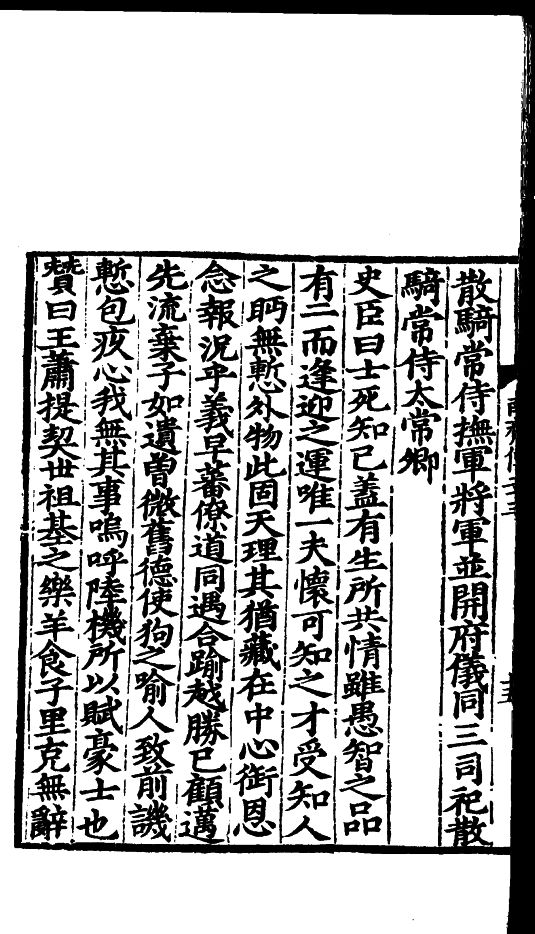 散騎常侍撫軍將軍並開府儀同三司祀散
騎常侍太常卿
史臣曰士死知己蓋有生所共情雖愚智之品
有二而逢迎之運唯一夫懷可知之才受知人
之眄無慙外物此固天理其猶藏在中心銜恩
念報況乎義早蕃僚道同遇合踰越勝已顧邁
先流棄子如遺曾微舊德使狗之喻人致前譏
慙包疚心我無其事嗚呼陸機所以賦豪士也
贊曰王蕭提契世祖基之樂羊食子里克無辭